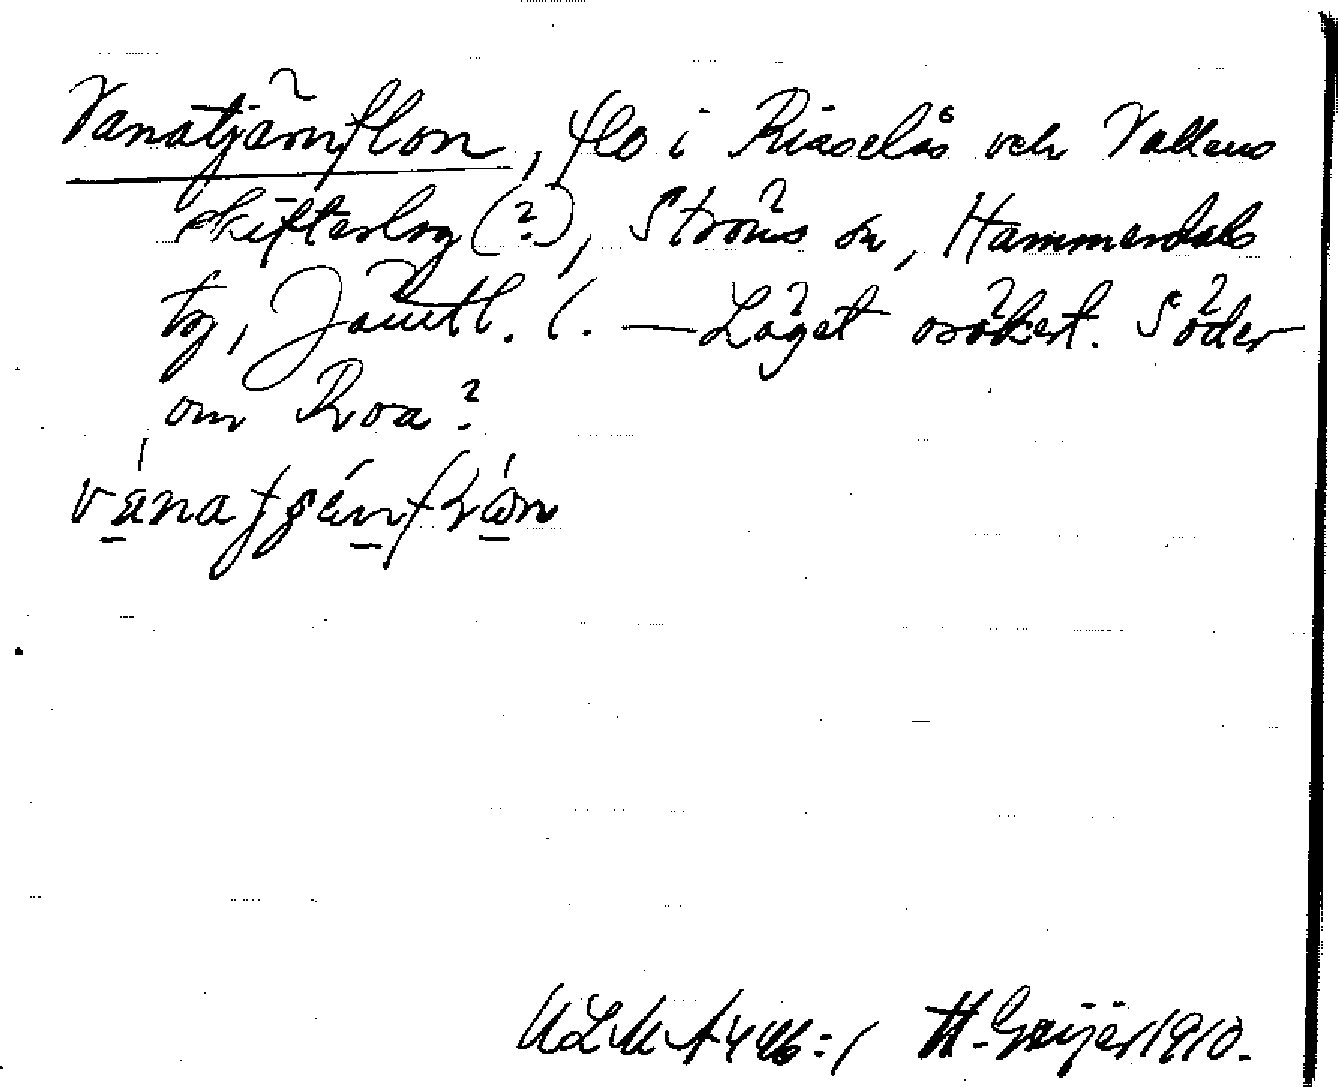 Vanatjärnflon, flo i Risselås och Vallens
skifteslag (?), Ströms sn, Hammerdals
tg, Jämtl. l. — Läget osäkert. Söder
om Roa?
H. Geijer 1910.